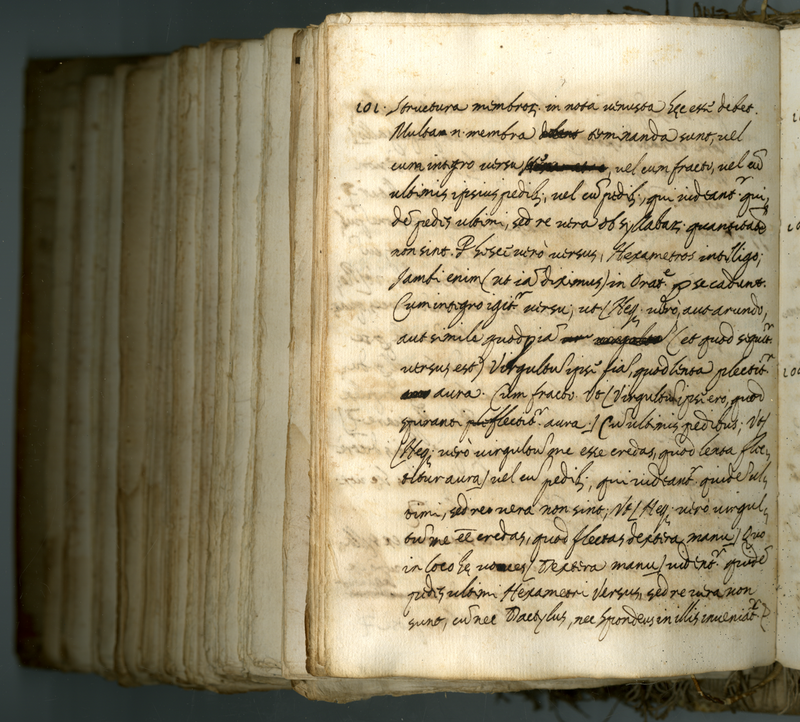 101. Structura membroꝝ. in nota venusta hęc esse debet.
Multa n. membra terminanda sunt, vel
cum integro versu, vel cum fracto, vel cū
ultimis ipsius pedib;, vel cū pedib;, qui videantʳ qui,
dē pedis ultimi, sed re vera ob syllabaꝝ quantitatē
non sint. P versus, Hexametros intelligo;
Jambi enim (ut iā diximus) in Orat.ᵉ ꝑ se cadunt.
Cum integro igitʳ versu; ut (Neq; verò, aut arundo,
aut simile quodpiā (et quod sequitʳ
versus est) Virgultū ipse fiā, quod lenta plectitʳ
aura. Cum fracto. Vt (Virgultū ipse ero, quod
spirant flectitʳ aura.) Cū ultimis pedibus; Vt
(Neq; verò virgultū me esse credas, quod lenta flec,
titur aura) vel cū pedib;, qui videantʳ quidē ul,
timi, sed re vera non sint; Vt (Neq; verò virgul,
tū me eē credas, quod flectas dextera manu) Quo
in loco hę voces (Dextera manu) videntʳ quidē
pedis ultimi Hexametri Versus, sed re vera non
sunt, cū nec Dactylus, nec Spondeus in illis inveniatʳ.